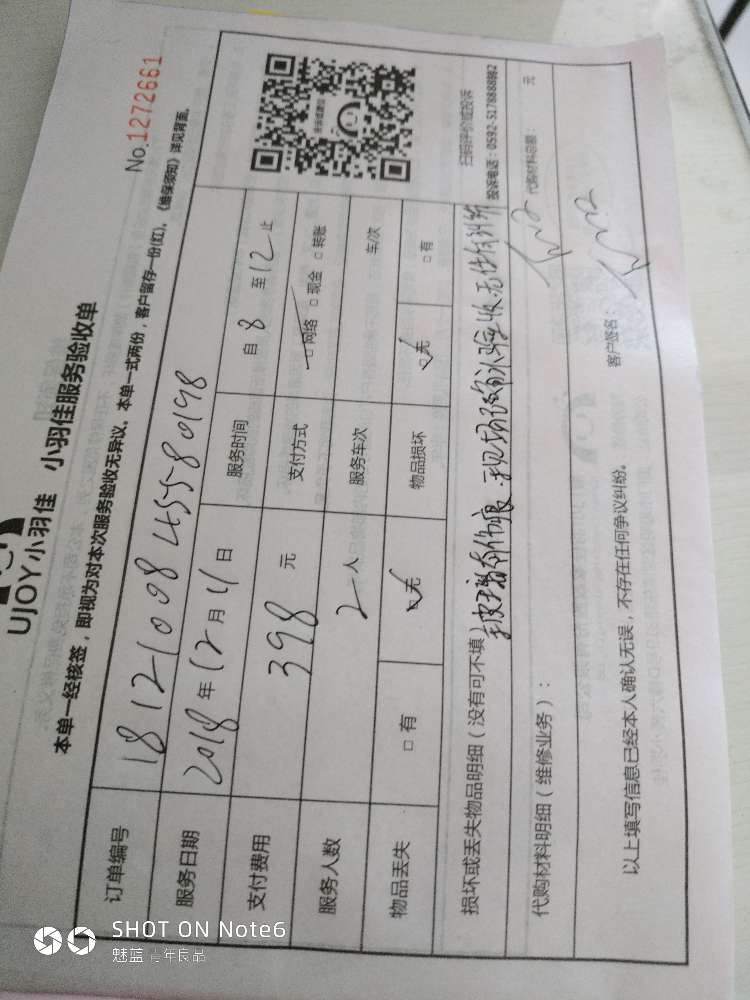 UJOY小羽佳 小羽佳服务验收单
No.1272661
本单一经核签，即视为对本次服务验收无异议。本单一式两份，客户留存一份(红)。《维保须知》详见背面。
订单编号 18121008455580198
服务日期 2018年12月11日 服务时间 自8至12止
支付费用 398元 支付方式 □网络 □现金 □转账
服务人数 2人 服务车次 车/次
物品丢失 □有 □无 物品损坏 □无 □有
扫码评价或投诉
投诉电话：0592-5178888转2
损坏或丢失物品明细（没有可不填） 玻璃有伤痕，现场已确认验收，无任何纠纷
代购材料明细（维修业务）： 代购材料总额： 元
以上填写信息已经本人确认无误，不存在任何争议纠纷。 客户签名：
SHOT ON Note6
魅蓝 青年良品